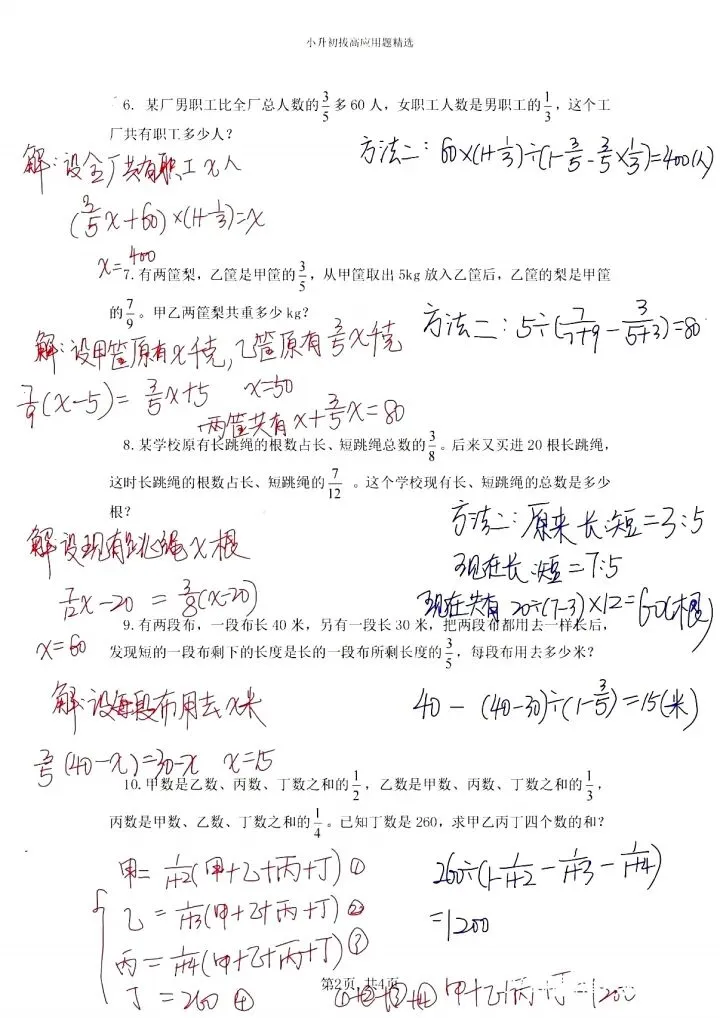 小升初拔高应用题精选
6. 某厂男职工比全厂总人数的3/5多60人，女职工人数是男职工的1/3，这个工
厂共有职工多少人？
解：设全厂共有职工x人
方法二：60×(1+1/3)÷(1-3/5-3/5×1/3)=400(人)
(3/5x+60)×(1+1/3)=x
x=400
7.有两筐梨，乙筐是甲筐的3/5，从甲筐取出5kg放入乙筐后，乙筐的梨是甲筐
的7/9。甲乙两筐梨共重多少kg？
解：设甲筐原有x千克，乙筐原有3/5x千克
方法二：5÷(7/(7+9)-3/(5+3))=80
7/9(x-5)=3/5x+5 x=50
两筐共有x+3/5x=80
8.某学校原有长跳绳的根数占长、短跳绳总数的3/8。后来又买进20根长跳绳，
这时长跳绳的根数占长、短跳绳的7/12。这个学校现有长、短跳绳的总数是多少
根？
解设现有跳绳x根
方法二：原来长:短=3:5
现在长:短=7:5
7/12x-20=3/8(x-20)
现在共有 20÷(7-3)×12=60(根)
x=60
9.有两段布，一段布长40米，另有一段长30米，把两段布都用去一样长后，
发现短的一段布剩下的长度是长的一段布所剩长度的3/5，每段布用去多少米？
解设每段布用去x米
40-(40-30)÷(1-3/5)=15(米)
3/5(40-x)=30-x x=15
10.甲数是乙数、丙数、丁数之和的1/2，乙数是甲数、丙数、丁数之和的1/3，
丙数是甲数、乙数、丁数之和的1/4。已知丁数是260，求甲乙丙丁四个数的和？
甲=1/(1+2)(甲+乙+丙+丁)①
260÷(1-1/(1+2)-1/(1+3)-1/(1+4))
乙=1/(1+3)(甲+乙+丙+丁)②
=1200
丙=1/(1+4)(甲+乙+丙+丁)③
第2页 共4页
丁=260 ④
①+②+③+④ 甲+乙+丙+丁=1200